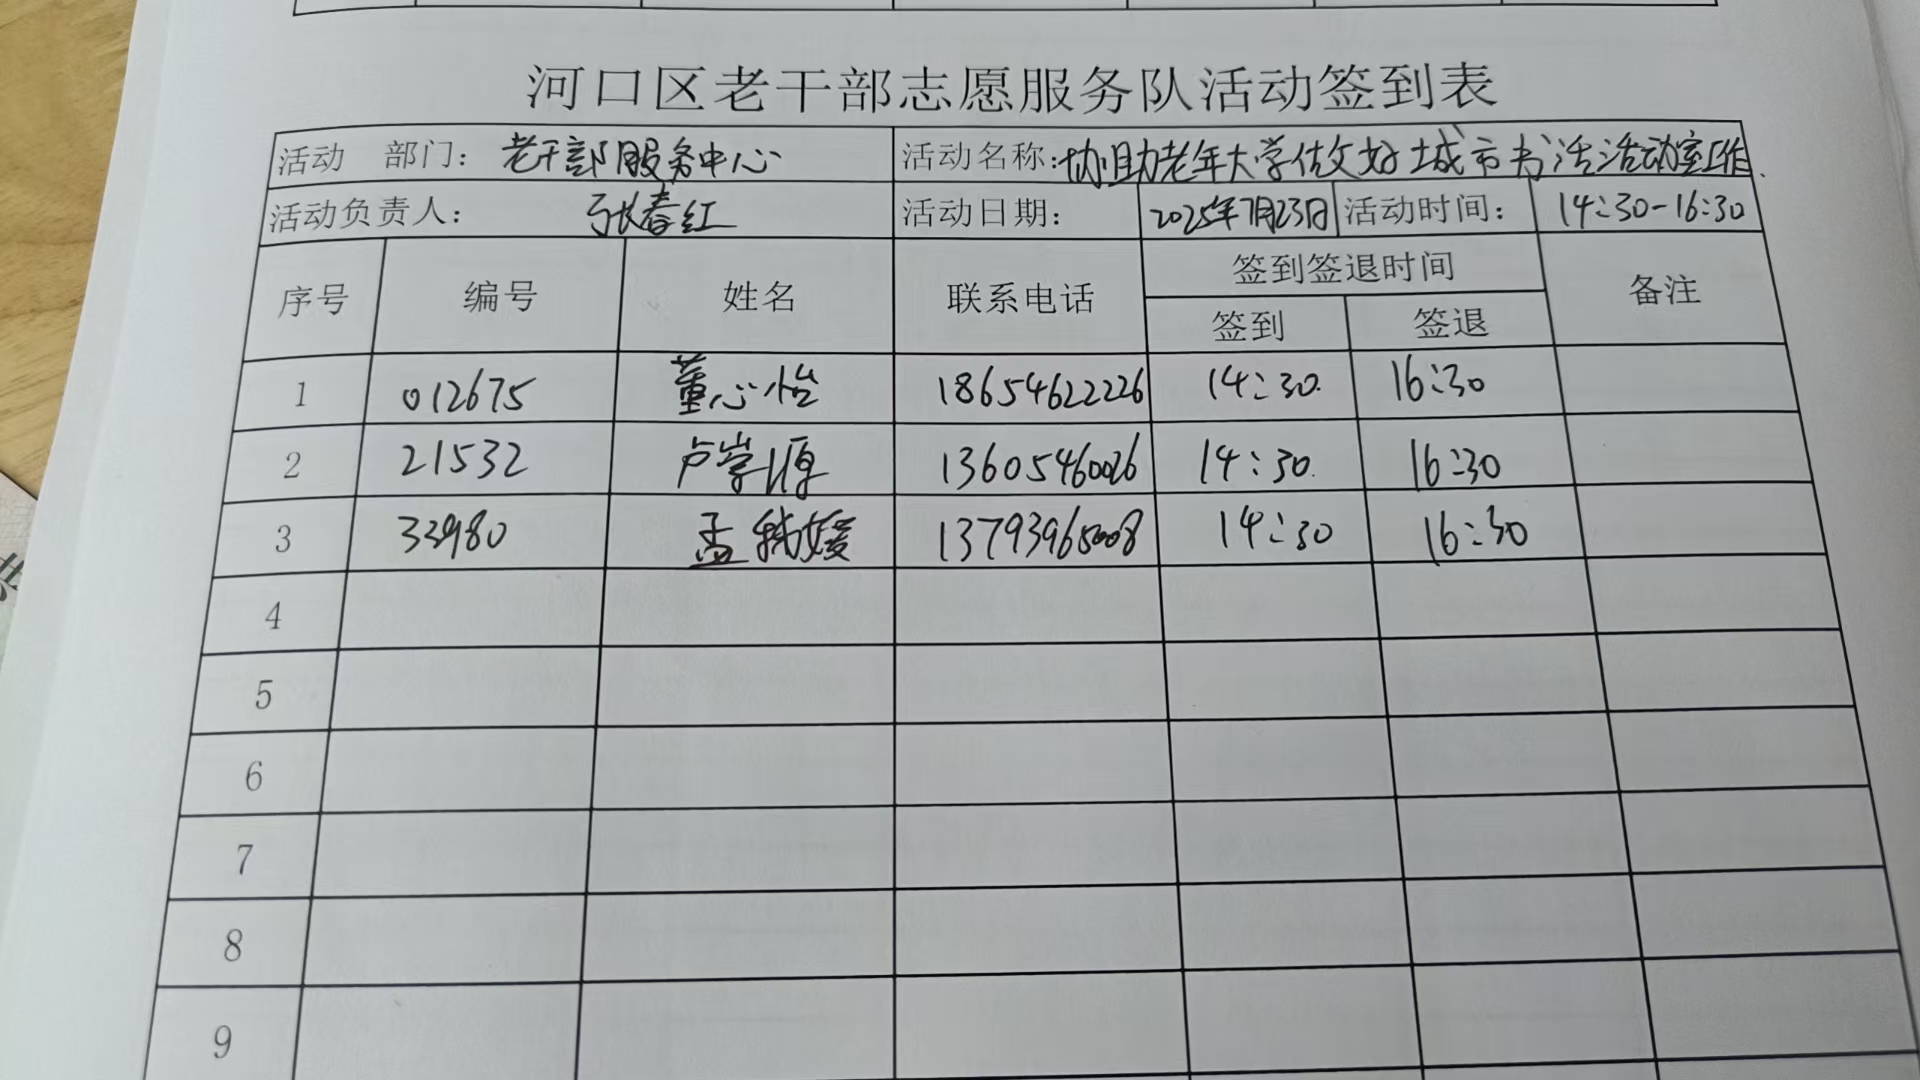 河口区老干部志愿服务队活动签到表
活动 部门： 老干部服务中心 活动名称：协助老年大学做好城市书活活动室工作.
活动负责人： 张春红 活动日期： 2025年7月23日 活动时间： 14:30-16:30
序号 编号 姓名 联系电话 签到签退时间 备注
签到 签退
1 012675 董心怡 18654622226 14:30 16:30
2 21532 卢学源 13605460026 14:30 16:30
3 33980 孟媛 13793965008 14:30 16:30
4
5
6
7
8
9